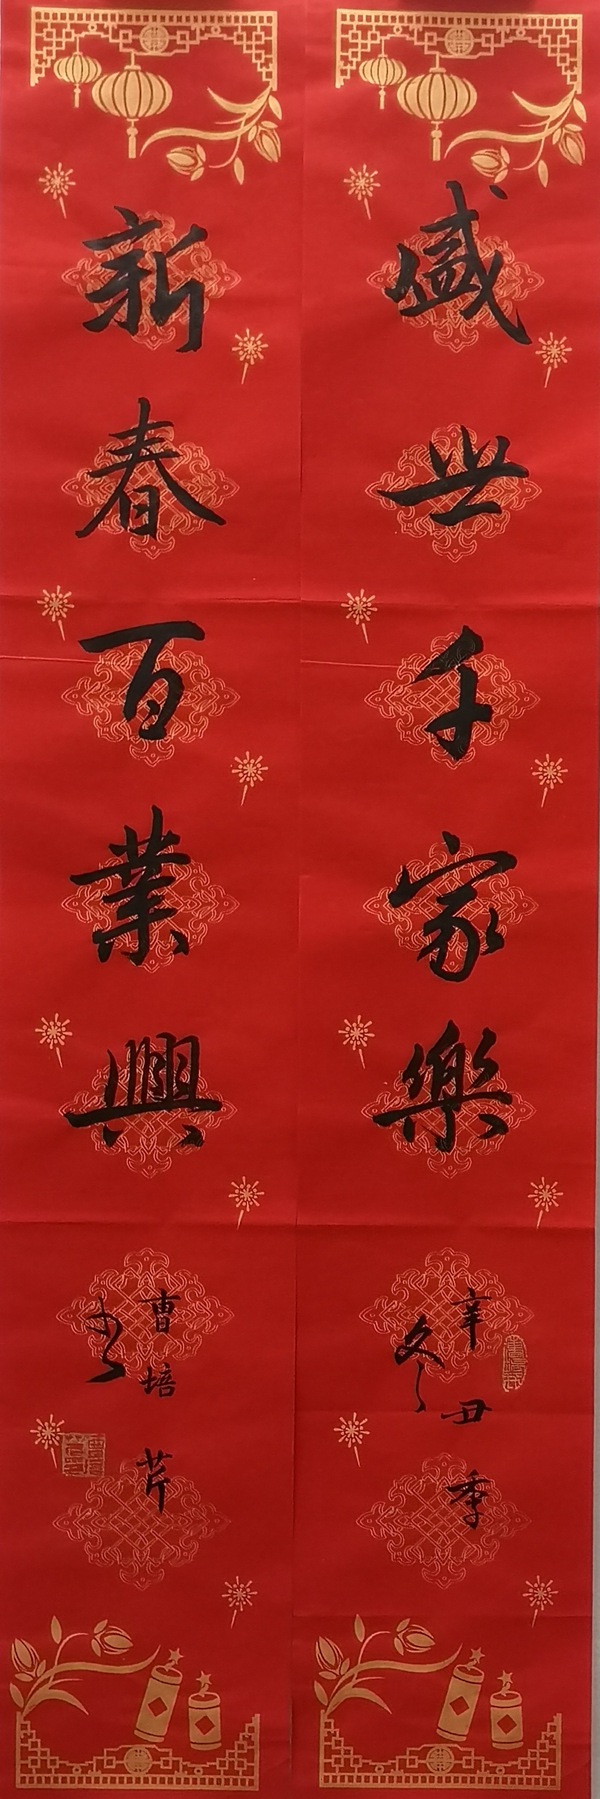 盛世千家樂
辛丑季
冬
新春百業興
曹培芹
书